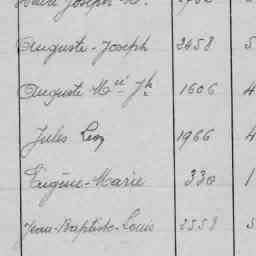 Joseph
Auguste-Joseph 2658 5
Auguste M<sup>ie</sup> J<sup>h</sup> 1606 4
Jules Léon 1966 4
Eugène-Marie 330 1
Jean-Baptiste-Louis 2558 5